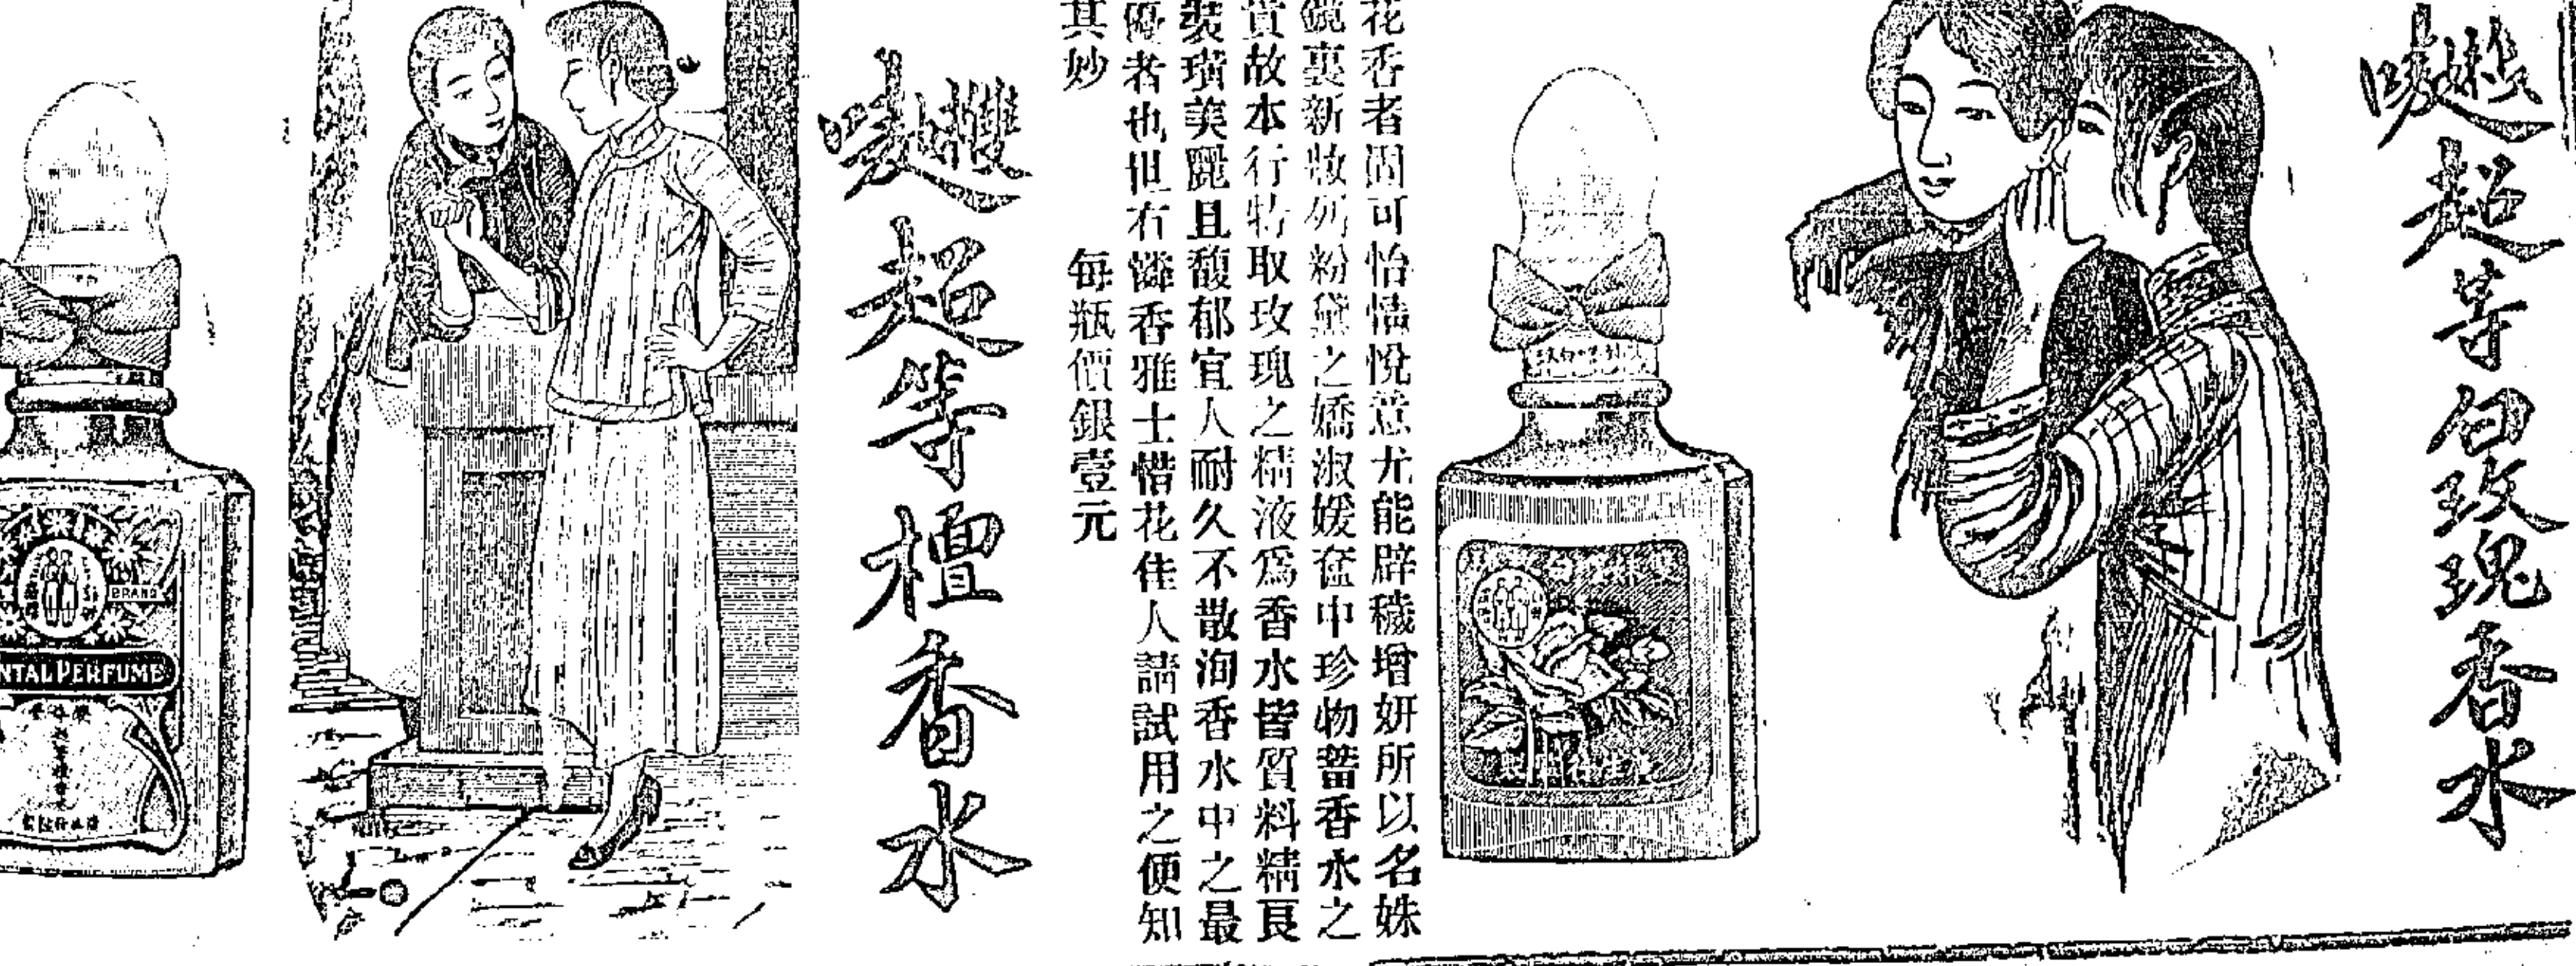 雙妹嘜超等白玫瑰香水
花香者固可怡情悅意尤能辟穢增妍所以名姝
鏡裏新妝列粉黛之嬌淑媛奩中珍物蓄香水之
賞故本行特取玫瑰之精液爲香水皆質料精良
裝璜美麗且馥郁宜人耐久不散洵香水中之最
優者也世有憐香雅士惜花佳人請試用之便知
其妙　每瓶價銀壹元
雙妹嘜超等檀香水
BRAND
NTAL PERFUME